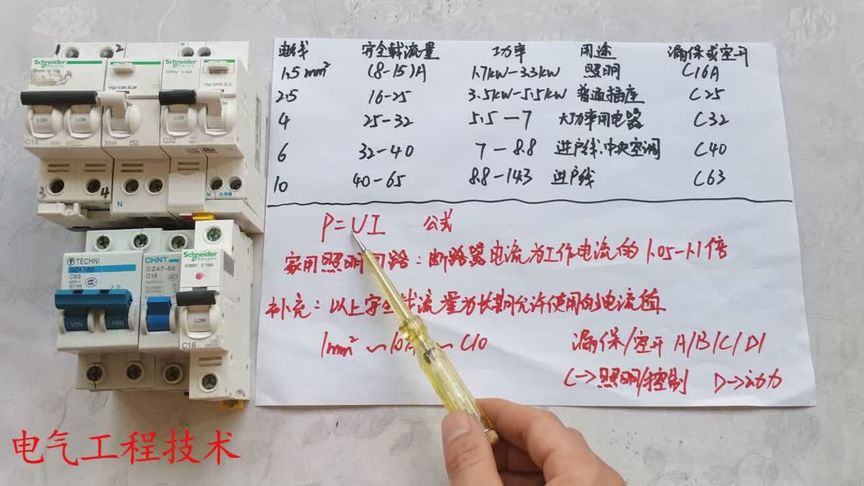 电线 安全载流量 功率 用途 漏保或空开
1.5mm² (8-15)A 1.7kW-3.3kW 照明 C16A
2.5 16-25 3.5kW-5.5kW 普通插座 C25
4 25-32 5.5-7 大功率用电器 C32
6 32-40 7-8.8 进户线.中央空调 C40
10 40-65 8.8-14.3 进户线 C63
P=UI 公式
家用照明回路:断路器电流为工作电流的1.05-1.1倍
补充:以上安全载流量为长期允许使用的电流值
1mm² ~ 10A ~ C10 漏保/空开 A/B/C/D/
C→照明/控制 D→动力
1 2
Schneider Electric
Schneider Electric
C16
C32
3 4
N
N
TECHNI
C63
CHNT
DZ47-60
C16
Schneider Electric
C16
电气工程技术